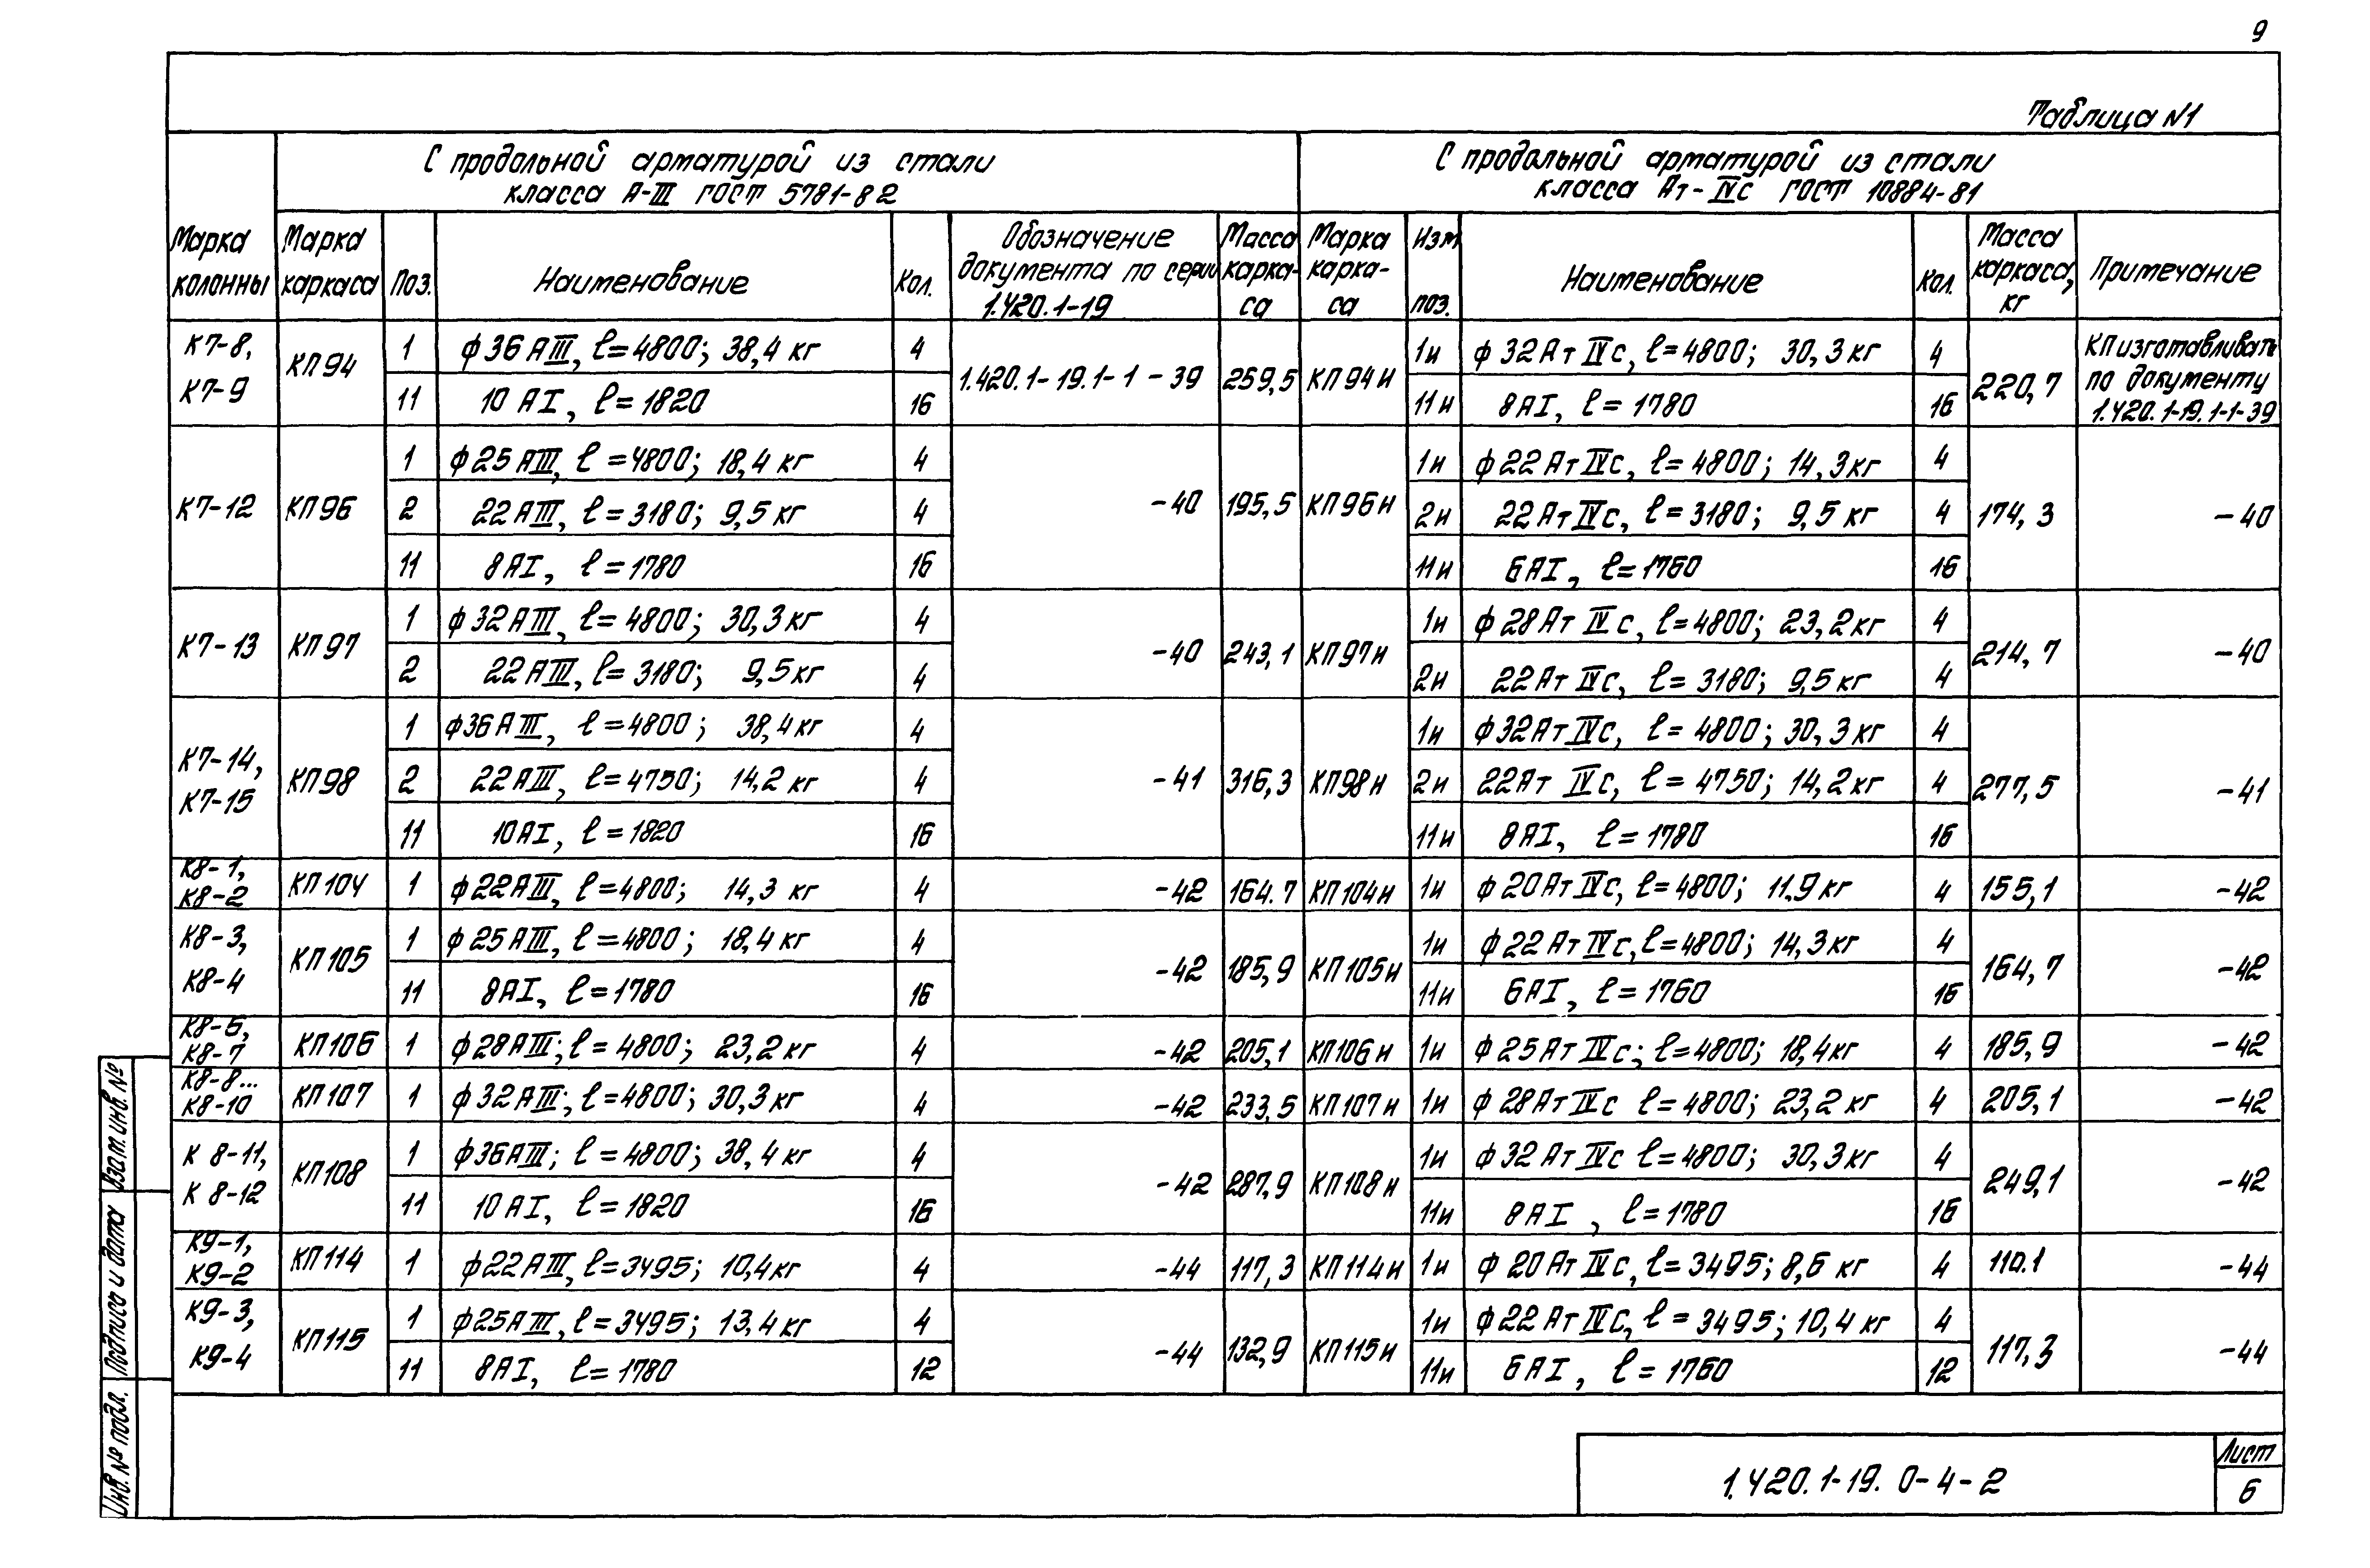 9
Таблица N1
С продольной арматурой из стали
класса А-III ГОСТ 5781-82
С продольной арматурой из стали
класса Ат-IVС ГОСТ 10884-81
Марка колонны
Марка каркаса
Поз.
Наименование
Кол.
Обозначение документа по серии 1.420.1-19
Масса каркаса
Марка каркаса
Изм поз.
Наименование
Кол.
Масса каркаса, кг
Примечание
К7-8, К7-9 КП94 1 ф36АIII, ℓ=4800; 38,4 кг 4 1.420.1-19.1-1-39 259,5 КП94и 1и ф32АтIVС, ℓ=4800; 30,3кг 4 220,7 КП изготавливать по документу 1.420.1-19.1-1-39
11 10АI, ℓ=1820 16 11и 8АI, ℓ=1780 16
К7-12 КП96 1 ф25АIII, ℓ=4800; 18,4 кг 4 -40 195,5 КП96и 1и ф22АтIVС, ℓ=4800; 14,3кг 4 174,3 -40
2 22АIII, ℓ=3180; 9,5 кг 4 2и 22АтIVС, ℓ=3180; 9,5 кг 4
11 8АI, ℓ=1780 16 11и 6АI, ℓ=1760 16
К7-13 КП97 1 ф32АIII, ℓ=4800; 30,3кг 4 -40 243,1 КП97и 1и ф28АтIVС, ℓ=4800; 23,2кг 4 214,7 -40
2 22АIII, ℓ=3180; 9,5кг 4 2и 22АтIVС, ℓ=3180; 9,5кг 4
К7-14, К7-15 КП98 1 ф36АIII, ℓ=4800; 38,4кг 4 -41 316,3 КП98и 1и ф32АтIVС, ℓ=4800; 30,3кг 4 277,5 -41
2 22АIII, ℓ=4750; 14,2кг 4 2и 22АтIVС, ℓ=4750; 14,2кг 4
11 10АI, ℓ=1820 16 11и 8АI, ℓ=1780 16
К8-1, К8-2 КП104 1 ф22АIII, ℓ=4800; 14,3 кг 4 -42 164.7 КП104и 1и ф20АтIVС, ℓ=4800; 11.9кг 4 155,1 -42
К8-3, К8-4 КП105 1 ф25АIII, ℓ=4800; 18,4кг 4 -42 185,9 КП105и 1и ф22АтIVС, ℓ=4800; 14,3кг 4 164,7 -42
11 8АI, ℓ=1780 16 11и 6АI, ℓ=1760 16
К8-6, К8-7 КП106 1 ф28АIII; ℓ=4800; 23,2кг 4 -42 205,1 КП106и 1и ф25АтIVС; ℓ=4800; 18,4кг 4 185,9 -42
К8-8... К8-10 КП107 1 ф32АIII; ℓ=4800; 30,3кг 4 -42 233,5 КП107и 1и ф28АтIVС ℓ=4800; 23,2кг 4 205,1 -42
К 8-11, К 8-12 КП108 1 ф36АIII; ℓ=4800; 38,4кг 4 -42 287,9 КП108и 1и ф32АтIVС ℓ=4800; 30,3кг 4 249,1 -42
11 10АI, ℓ=1820 16 11и 8АI, ℓ=1780 16
К9-1, К9-2 КП114 1 ф22АIII, ℓ=3495; 10,4кг 4 -44 117,3 КП114и 1и ф20АтIVС, ℓ=3495; 8,6 кг 4 110.1 -44
К9-3, К9-4 КП115 1 ф25АIII, ℓ=3495; 13,4кг 4 -44 132,9 КП115и 1и ф22АтIVС, ℓ=3495; 10,4кг 4 117,3 -44
11 8АI, ℓ=1780 12 11и 6АI, ℓ=1760 12
Взам. инв. №
Подпись и дата
Инв. № подл.
1.420.1-19. 0-4-2
Лист
6